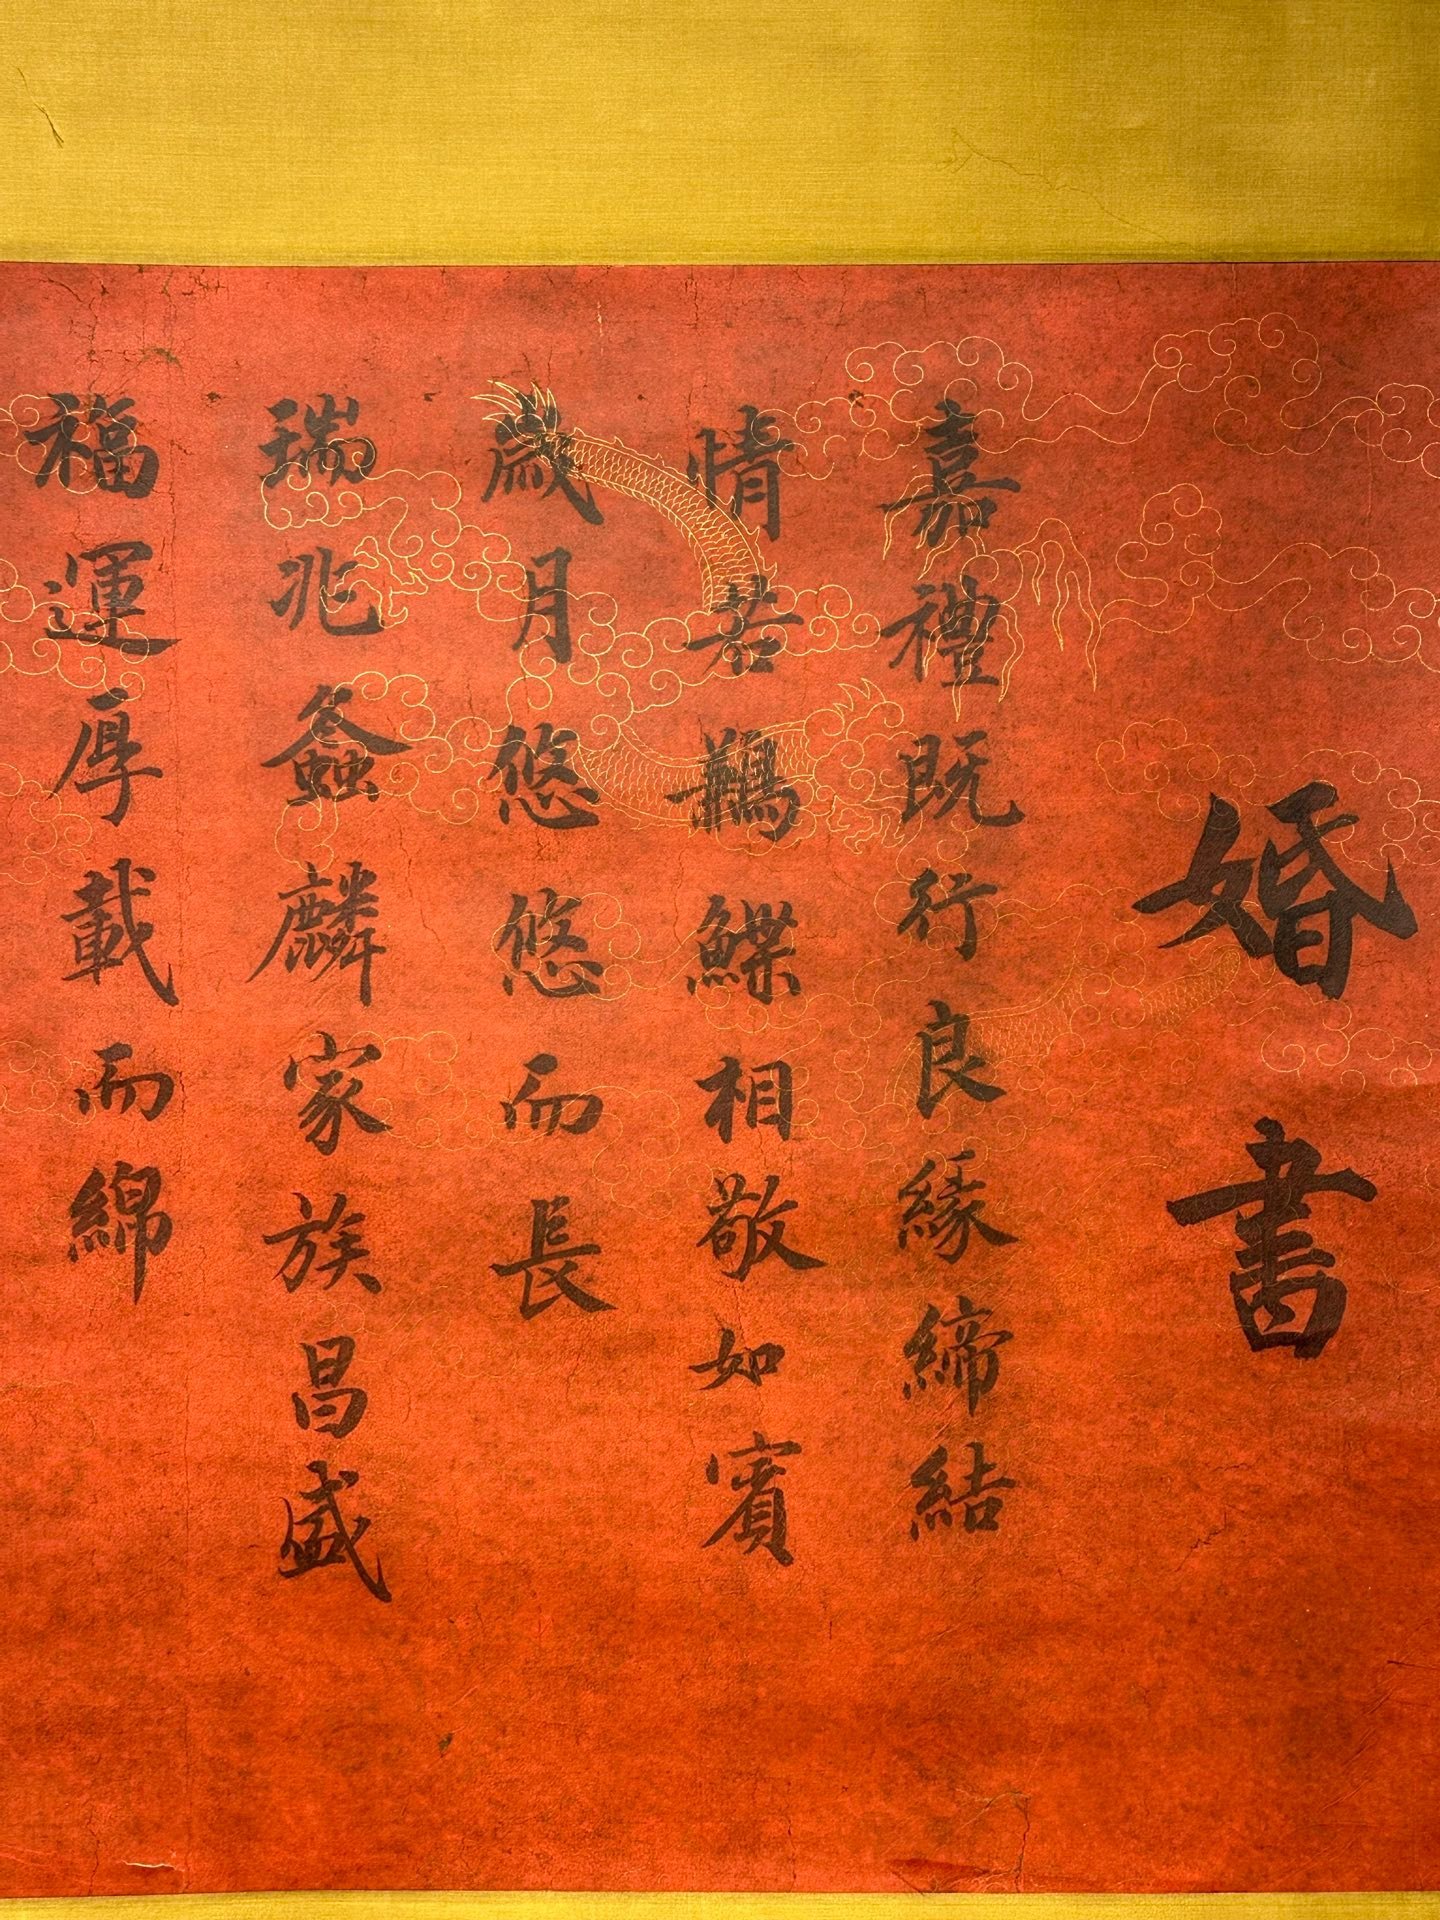 婚書
嘉禮既行良緣締結
情若鶼鰈相敬如賓
歲月悠悠而長
瑞兆螽麟家族昌盛
福運厚載而綿